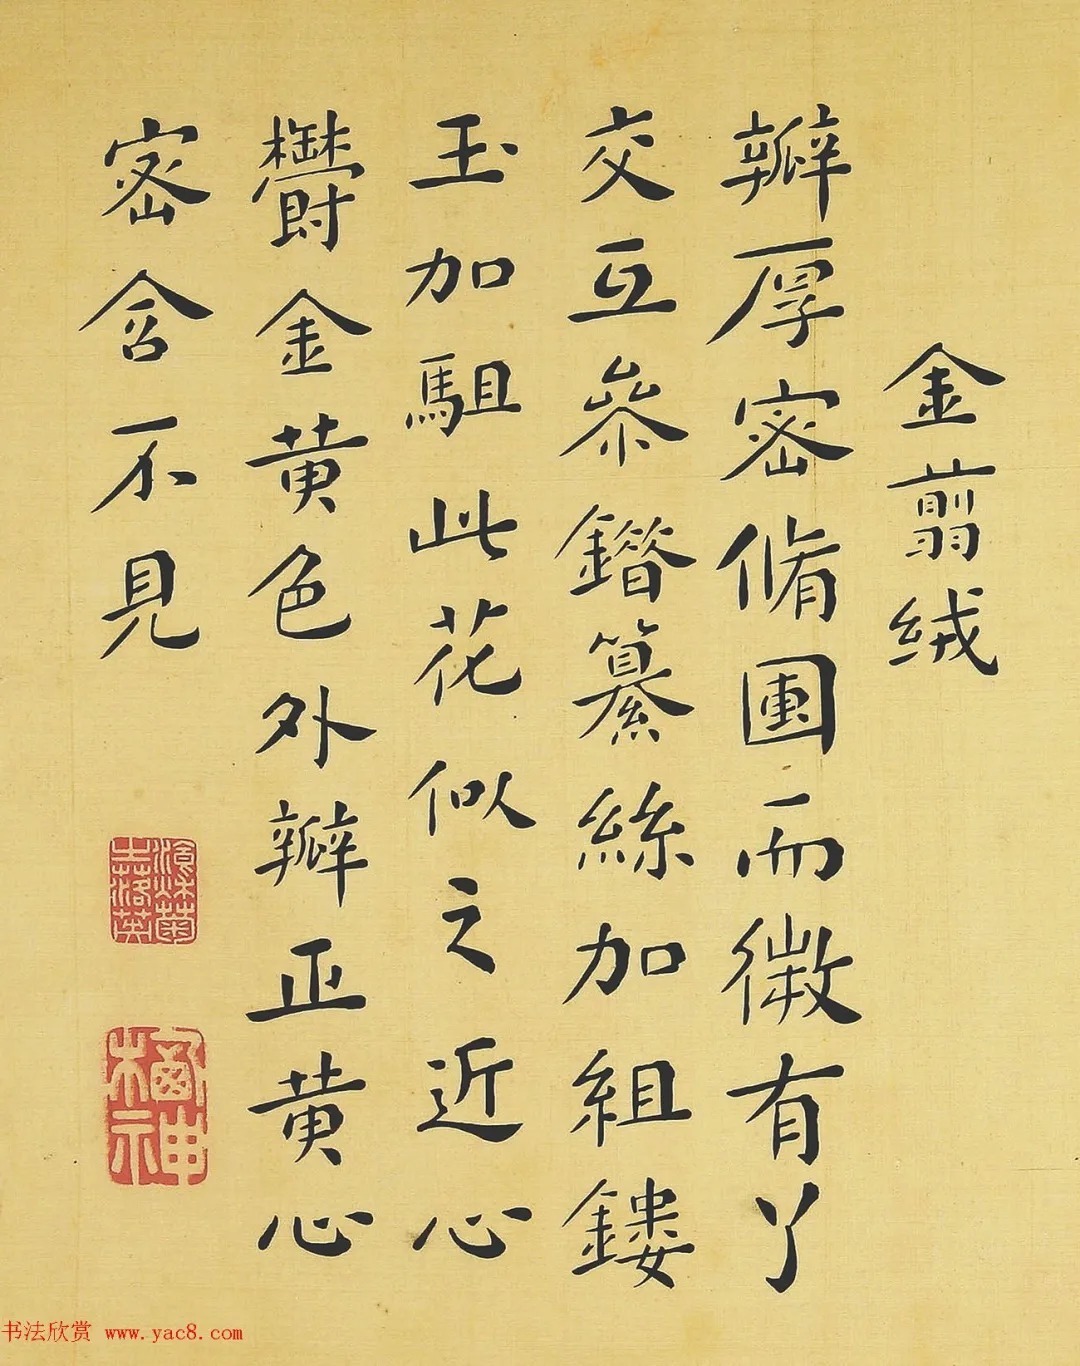 金翦絨
瓣厚密脩團而微有丫
交互參鐕纂絲加組鏤
玉加駔此花似之近心
欝金黄色外瓣正黄心
密含不見
湌秋菊之落英
书法欣赏 www.yac8.com